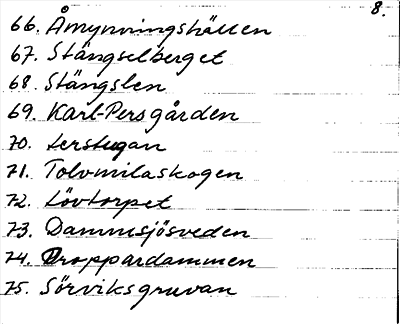 8.
66. Åmynningshällen
67. Stängselberget
68. Stängslen
69. Karl-Persgården
70. Lerstugan
71. Tolvmilaskogen
72. Lövtorpet
73. Dammsjösveden
74. Droppardammen
75. Sörviksgruvan